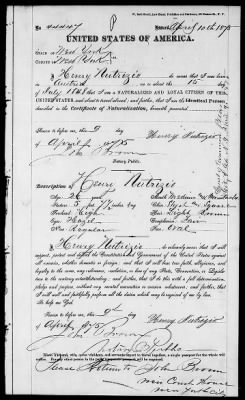 44447
Issued, April 10th 1875
UNITED STATES OF AMERICA.
STATE OF New York
COUNTY OF New York
I, Henry Nutrizio do swear that I was born
in Austria on or about the 15 day
of July 1848 that I am a NATURALIZED AND LOYAL CITIZEN OF THE
UNITED STATES, and about to travel abroad; and further, that I am the Identical Person
described in the Certificate of Naturalization, herewith presented.
Sworn to before me, this 9 day
of April 1875
Henry Nutrizio
John Brown
Notary Public.
Description of Henry Nutrizio
Age, 26 years
Mouth, Medium
Stature, 5 feet inches, Eng.
Chin,
Forehead, High
Hair, Light Brown
Eyes, Hazel
Complexion, Fair
Nose, Regular
Face, Oval
I, Henry Nutrizio do solemnly swear that I will
support, protect, and defend the Constitution and Government of the United States against
all enemies, whether domestic or foreign; and that I will bear true faith, allegiance, and
loyalty to the same, any ordinance, resolution, or law of any State, Convention, or Legisla-
ture to the contrary notwithstanding; and further, that I do this with a full determination,
pledge, and purpose, without any mental reservation or evasion whatsoever; and further, that
I will well and faithfully perform all the duties which may be required of me by law.
So help me God.
Sworn to before me, this 9th day
of April 1875
Henry Nutrizio
John Brown
Notary Public
Please return to John Brown
New Court House
New York City